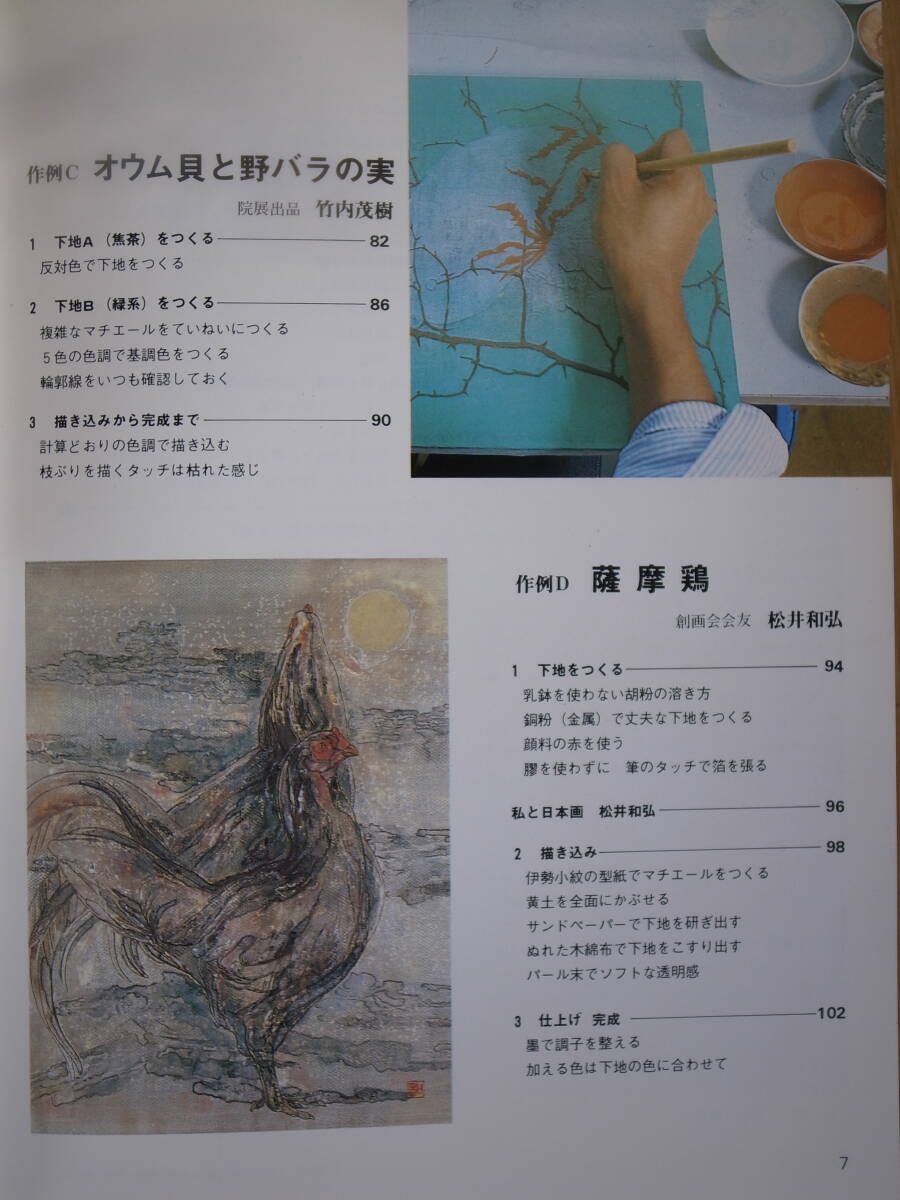 作例C オウム貝と野バラの実
院展出品 竹内茂樹
1 下地A（焦茶）をつくる 82
反対色で下地をつくる
2 下地B（緑系）をつくる 86
複雑なマチエールをていねいにつくる
5色の色調で基調色をつくる
輪郭線をいつも確認しておく
3 描き込みから完成まで 90
計算どおりの色調で描き込む
枝ぶりを描くタッチは枯れた感じ
作例D 薩摩鶏
創画会会友 松井和弘
1 下地をつくる 94
乳鉢を使わない胡粉の溶き方
銅粉（金属）で丈夫な下地をつくる
顔料の赤を使う
膠を使わずに 筆のタッチで箔を張る
私と日本画 松井和弘 96
2 描き込み 98
伊勢小紋の型紙でマチエールをつくる
黄土を全面にかぶせる
サンドペーパーで下地を研ぎ出す
ぬれた木綿布で下地をこすり出す
パール末でソフトな透明感
3 仕上げ 完成 102
墨で調子を整える
加える色は下地の色に合わせて
7